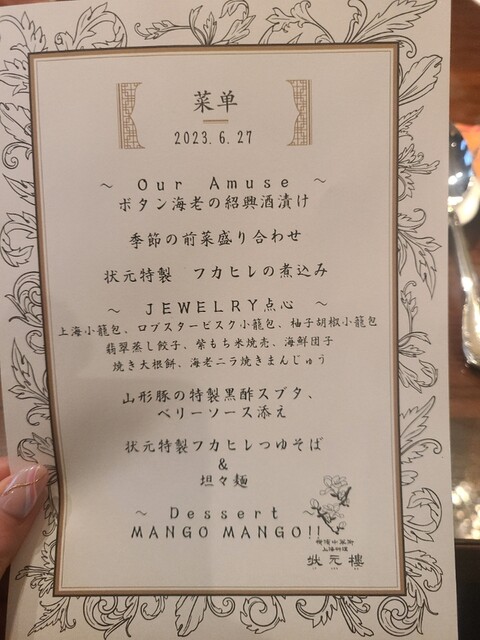 菜单
2023.6.27
～ Our Amuse ～
ボタン海老の紹興酒漬け
季節の前菜盛り合わせ
状元特製 フカヒレの煮込み
～ JEWELRY点心 ～
上海小籠包、ロブスタービスク小籠包、柚子胡椒小籠包
翡翠蒸し餃子、紫もち米焼売、海鮮団子
焼き大根餅、海老ニラ焼きまんじゅう
山形豚の特製黒酢スブタ、
ベリーソース添え
状元特製フカヒレつゆそば
&
坦々麺
～ Dessert
MANGO MANGO!!
横濱中華街
上海料理
状元樓